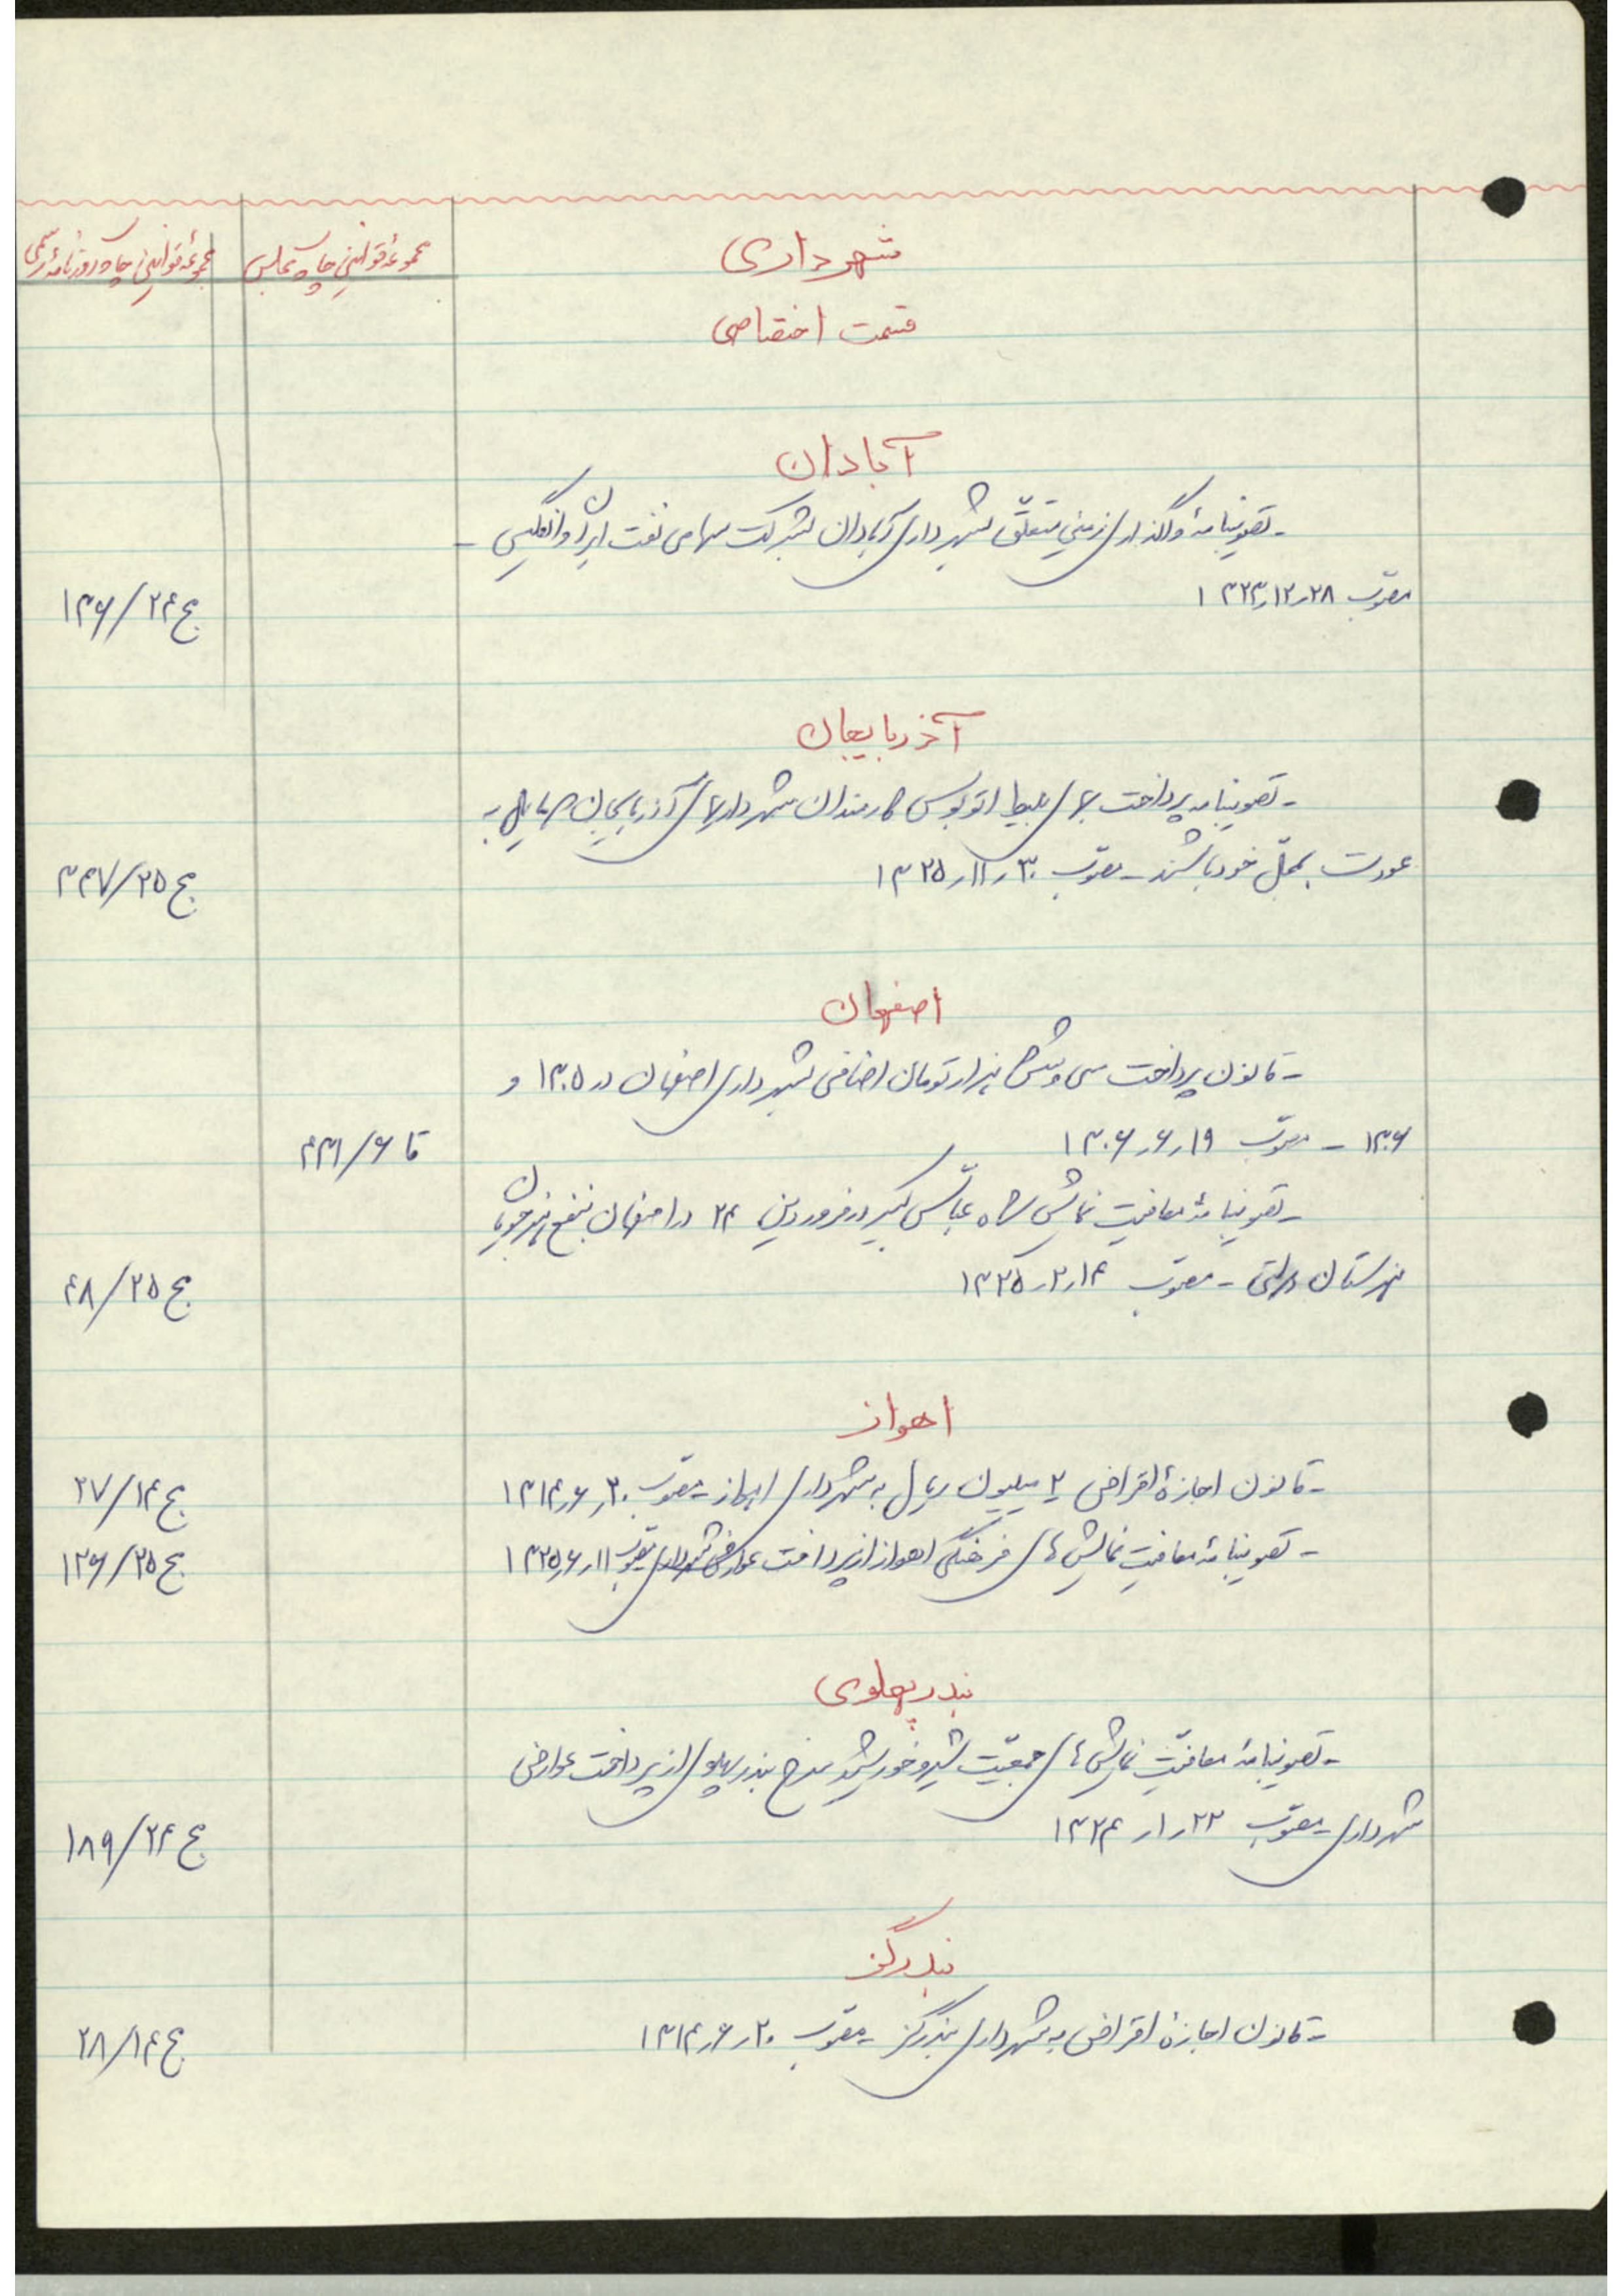 شهرداری
مجموعهٔ قوانین چاپ مجلس
مجموعهٔ قوانین چاپ روزنامهٔ رسمی
قسمت اختصاصی
آبادان
- تصویبنامهٔ واگذاری زمین متعلّق بشهرداری آبادان بشرکت سهامی نفت ایران و انگلیس -
مصوّب ۲۸ر۱۲ر۱۳۲۳
ج ۲۴/۱۳۶
آذربایجان
- تصویبنامه پرداخت بهای بلیط اتوبوس کارمندان شهرداریهای آذربایجان که مایل به
عودت بمحلّ خود باشند - مصوّب ۳۰ر۱۱ر۱۳۲۵
ج ۲۵/۳۴۷
اصفهان
- قانون پرداخت سی و شش هزار تومان اضافی بشهرداری اصفهان در ۱۳۰۵ و
۱۳۰۶ - مصوّب ۱۹ر۶ر۱۳۰۶
قا ۶/۴۳۱
- تصویبنامهٔ معافیت نمایش شاه عبّاس کبیر در فروردین ۲۴ در اصفهان بنفع هنرجویان
هنرستان دولتی - مصوّب ۱۴ر۲ر۱۳۲۵
ج ۲۵/۴۸
اهواز
- قانون اجازهٔ اقراض ۲ میلیون ریال به شهرداری اهواز - مصوّب ۳۰ر۶ر۱۳۱۴
ج ۱۴/۲۷
- تصویبنامهٔ معافیت نمایش های فرهنگی اهواز از پرداخت عوارض شهرداری مصوّب ۱۱ر۶ر۱۳۲۵
ج ۲۵/۱۲۶
بندر پهلوی
- تصویبنامهٔ معافیّت نمایش های جمعیّت شیر و خورشید سرخ بندر پهلوی از پرداخت عوارض
شهرداری - مصوّب ۲۲ر۱ر۱۳۲۴
ج ۲۴/۱۸۹
بندرگز
- قانون اجازهٔ اقراض به شهرداری بندرگز - مصوّب ۲۰ر۶ر۱۳۱۴
ج ۱۴/۲۸